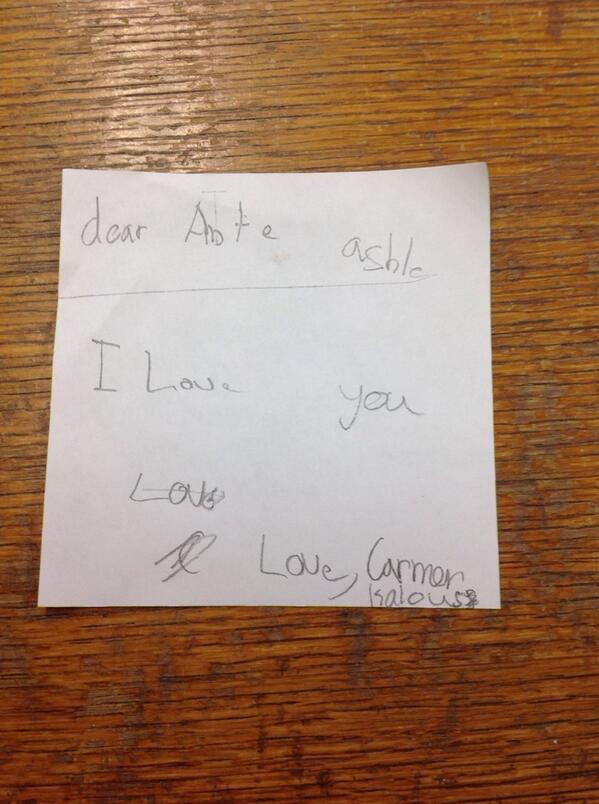 dear Ante ashle
I Love you
Love
Love, Carmen